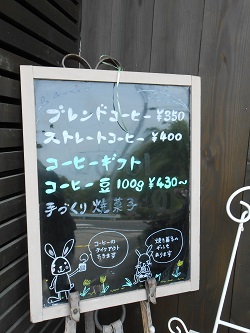 ブレンドコーヒー ¥350
ストレートコーヒー ¥400
コーヒーギフト
コーヒー豆 100g ¥430〜
手づくり 焼菓子
コーヒーの
テイクアウト
できます
焼き菓子の
ギフトも
あります